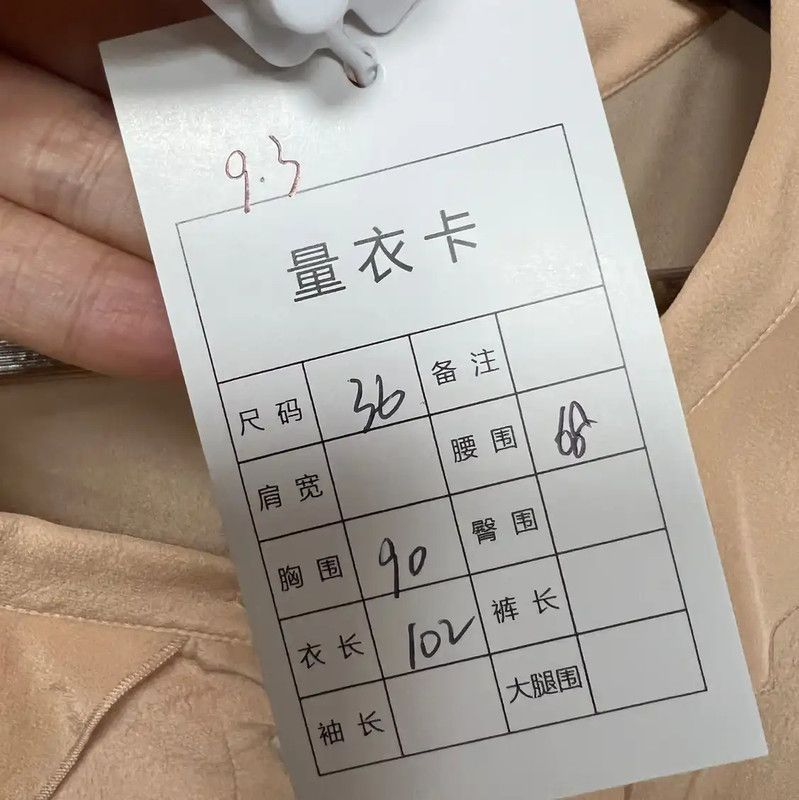 9.3
量衣卡
尺码 36 备注
肩宽 腰围 68
胸围 90 臀围
衣长 102 裤长
袖长 大腿围